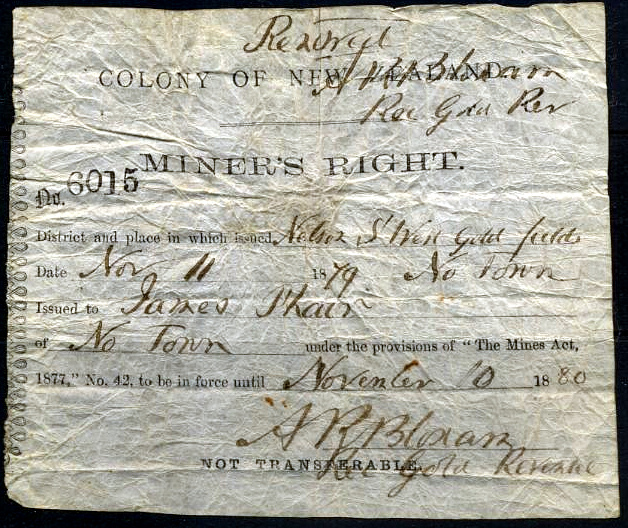 Renewed
A R Bloxam
COLONY OF NEW ZEALAND
Rec Gold Rev
MINER'S RIGHT.
No. 6015
District and place in which issued Nelson S West Gold fields
Date Nov 11 1879 No Town
Issued to James Phair
of No Town under the provisions of "The Mines Act,
1877," No. 42, to be in force until November 10 1880
A R Bloxam
NOT TRANSFERABLE.
Rec Gold Revenue